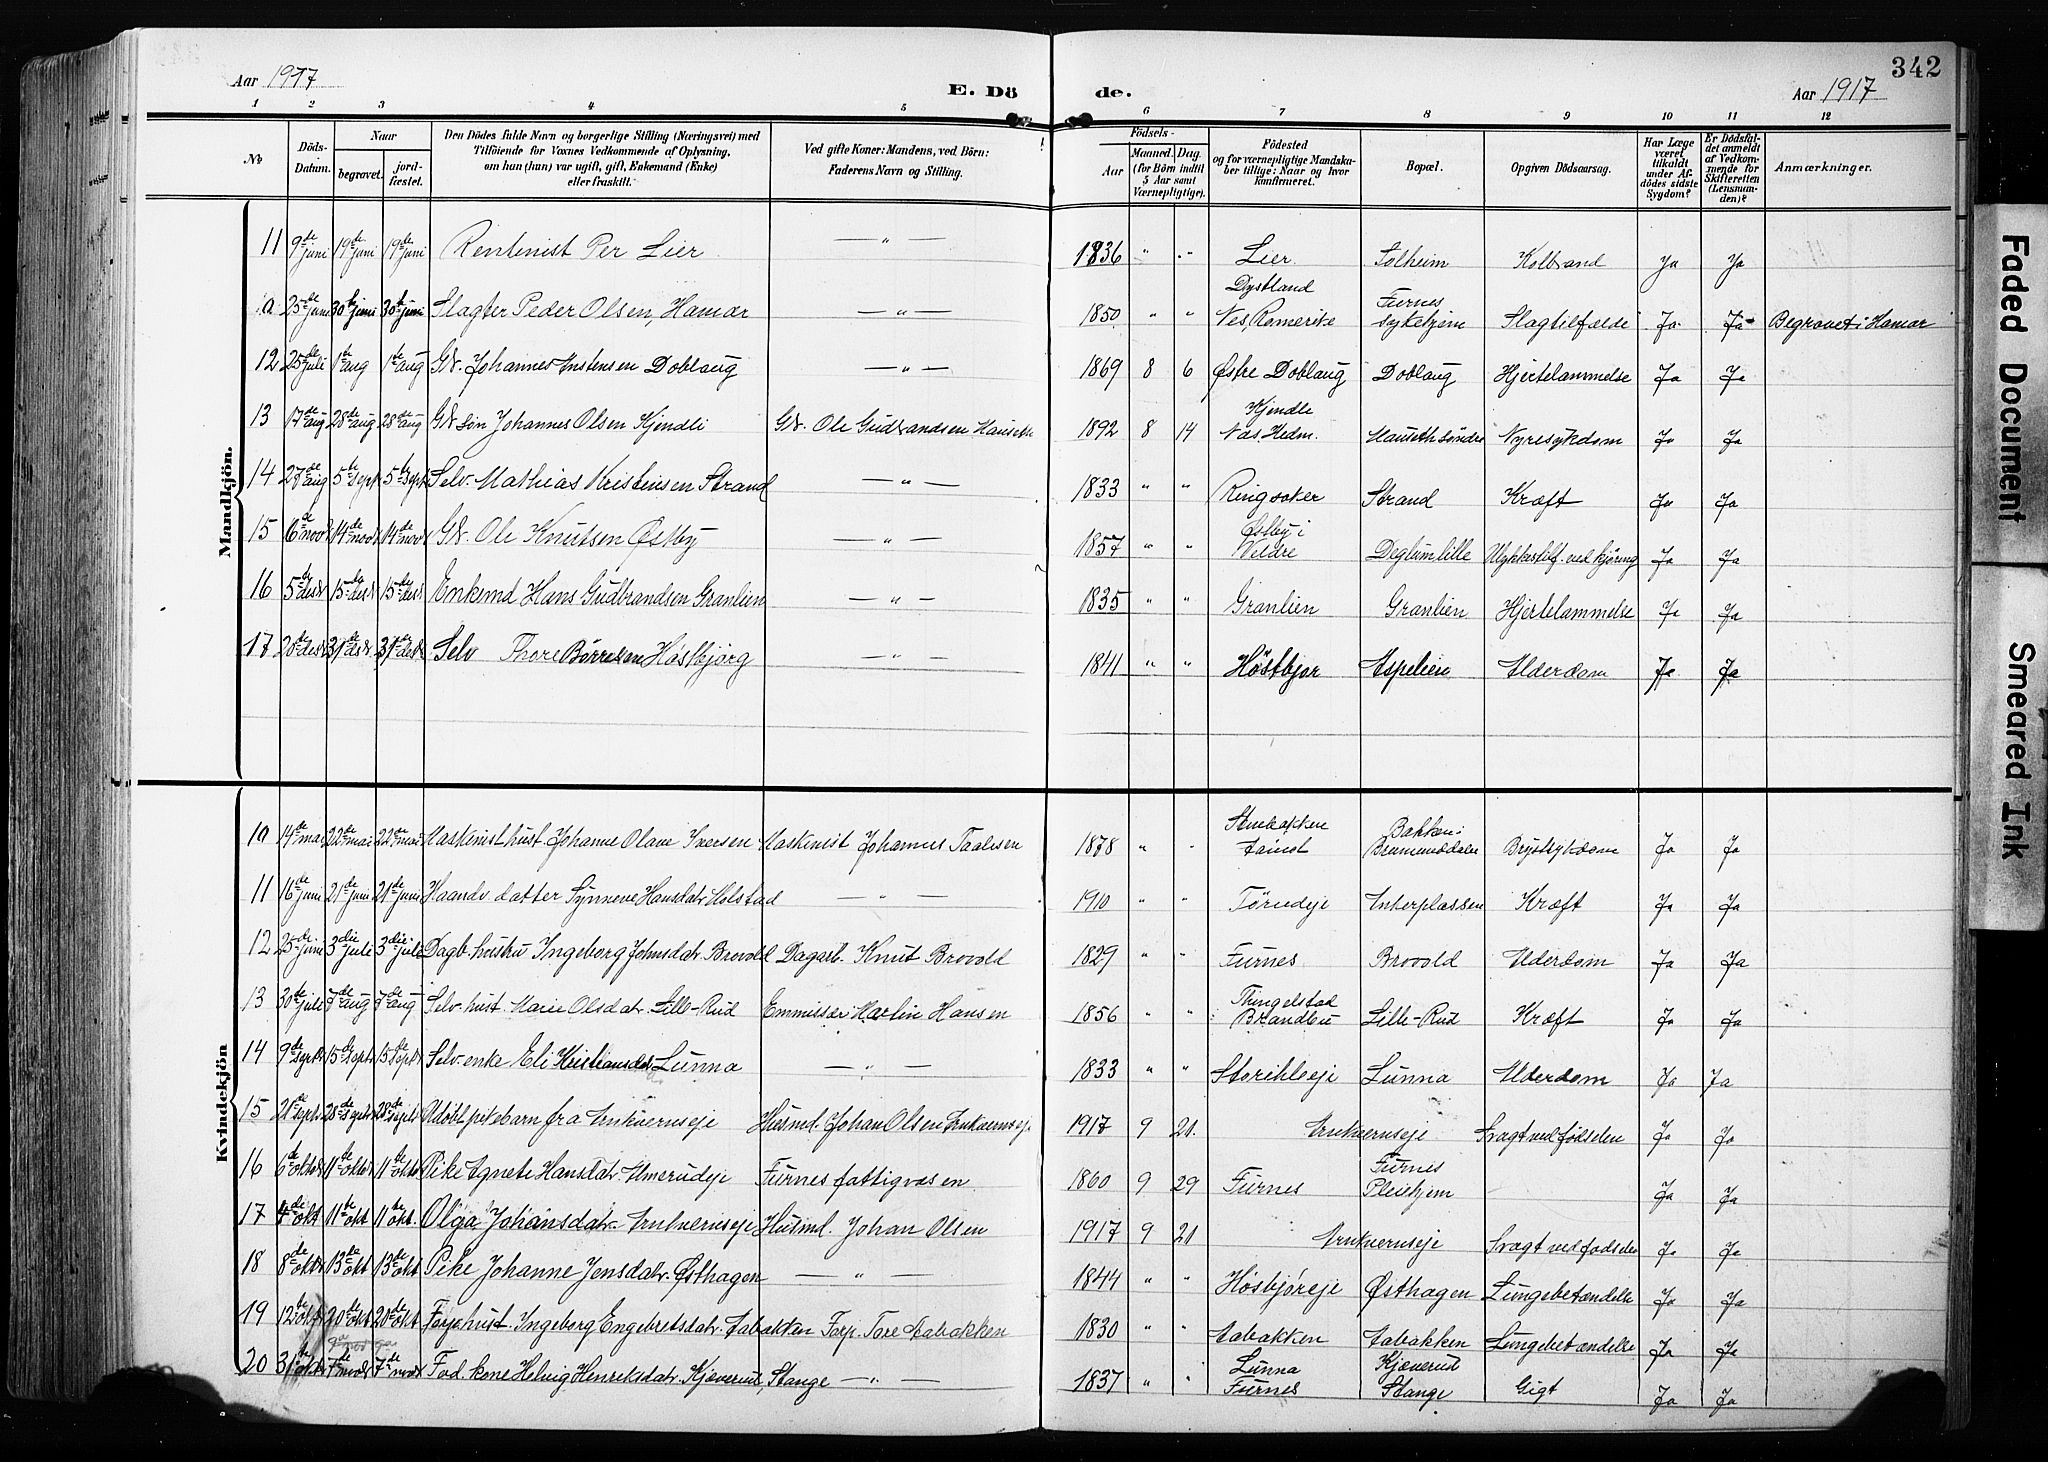 342
Aar 1917
E. Dö
de.
Aar 1917
1 2 3 4 5 6 7 8 9 10 11 12
№
Döds-Datum.
Naar
begravet.
jord-fæstet.
Den Dödes fulde Navn og borgerlige Stilling (Næringsvei) med
Tilföiende for Voxnes Vedkommende af Oplysning,
om han (hun) var ugift, gift, Enkemand (Enke)
eller fraskilt.
Ved gifte Koner: Mandens, ved Börn:
Faderens Navn og Stilling.
Födsels-
Aar
Maaned. Dag.
(for Börn indtil
5 Aar samt
Værnepligtige).
Födested
og for værnepligtige Mandska-
ber tillige: Naar og hvor
konfirmeret.
Bopæl.
Opgiven Dödsaarsag.
Har Læge
været
tilkaldt
under Af-
dödes sidste
Sygdom?
Er Dödsfal-
det anmeldt
af Vedkom-
mende for
Skifteretten
(Lensman-
den)?
Anmærkninger.
Mandkjön.
11 9de juni 19de juni 19de juni Rentenist Per Lier — " — 1836 " " Lier Solheim Kolbrand Ja Ja
a 25de juni 30te juni 30te juni Slagter Peder Olsen, Hamar — " — 1850 " " Dystland Nes, Romerike Furnes sykehjem Slagtilfælde Ja Ja Begravet i Hamar
12 25de juli 1te aug 1te aug Gdr. Johannes Anstensen Doblaug — " — 1869 8 6 Østre Doblaug Doblaug Hjertelammelse Ja Ja
13 17de aug 28de aug 28de aug Gdr. søn Johannes Olsen Kjendli Gdr. Ole Gudbrandsen Hauseth 1892 8 14 Kjendle Nas Hedm. Hauseth søndre Nyresykdom Ja Ja
14 27de aug 5te sept 5te sept Selv. Mathias Kristensen Strand — " — 1833 " " Ringsaker Strand Kræft Ja Ja
15 6de novb 14de nov 14de nov Gdr. Ole Knutsen Østby — " — 1857 " " Østby i Veldre Deglum lille Ulykkestilf. ved kjøring Ja Ja
16 5te desb 15de desb 15de desb Enkemd Hans Gudbrandsen Granlien — " — 1835 " " Granlien Granlien Hjertelammelse Ja Ja
17 20de desb 31de desb 31de desb Selv Thore Børresen Høsbjørg — " — 1841 " " Høstbjør Aspelien Alderdom Ja Ja
Kvindekjön
10 14de mai 22de mai 22de mai Maskinist hust. Johanne Olave Iversen Maskinist Johannes Taalesen 1878 " " Stenbakken Bakken i Brumunddalen Brystsykdom Ja Ja
11 16de juni 21de juni 21de juni Haandv. datter Synnøve Hansdatr Holstad — " — 1910 " " Tørudeje Ankerplassen Kræft Ja Ja
12 25de juni 3die juli 3die juli Dagb. hustru Ingeborg Johnsdatr Brovold Dagarb. Knut Brovold 1829 " " Furnes Brovold Alderdom Ja Ja
13 30te juli 7de aug 7de aug Selv. hust Marie Olsdatr. Lille-Rud Emmissær Martin Hansen 1856 " " Thingelstad Brandbu Lille-Rud Kræft Ja Ja
14 9de septb 15de sept 15de sept Selv. enke Eli Kristiansdatr Lunna — " — 1833 " " Storihleeje Lunna Alderdom Ja Ja
15 21de sept 28de septb 28de septb Udøbt pikebarn fra Arnkværnseje Husmd. Johan Olsen Arnkværnseje 1917 9 21. Arnkværnseje Svagt ved fødselen Ja Ja
16 6de oktb 11te oktb 11te oktb Pike Agnete Hansdatr. Almerudeje Furnes fattigvæsen 1860 9 29 Furnes Furnes Pleiehjem — Ja Ja
17 4de okt 11te okt 11te okt. Olga Johansdatr Arnkværnseje Husmd. Johan Olsen 1917 9 21 Arnkværnseje Svagt ved fødselen Ja Ja
18 8de oktb 13de okt 13de okt Pike Johanne Jensdatr. Østhagen — " — 1844 " " Høsbjøreje Østhagen Lungebetændelse Ja Ja
19 12te oktb 20de okt 20de okt Forp. hust. Ingeborg Engebretsdatr Aabakken Forp. Tore Aabakken 1830 " " Aabakken Aabakken Lungebetændelse Ja Ja
20 31te oktb 7de novb 7de novb Fod. kone Helvig Henriksdatr. Kjæverud, Stange — " — 1837 " " Lunna Furnes Kjæverud Stange Gigt Ja Ja
Faded Document
Smeared Ink